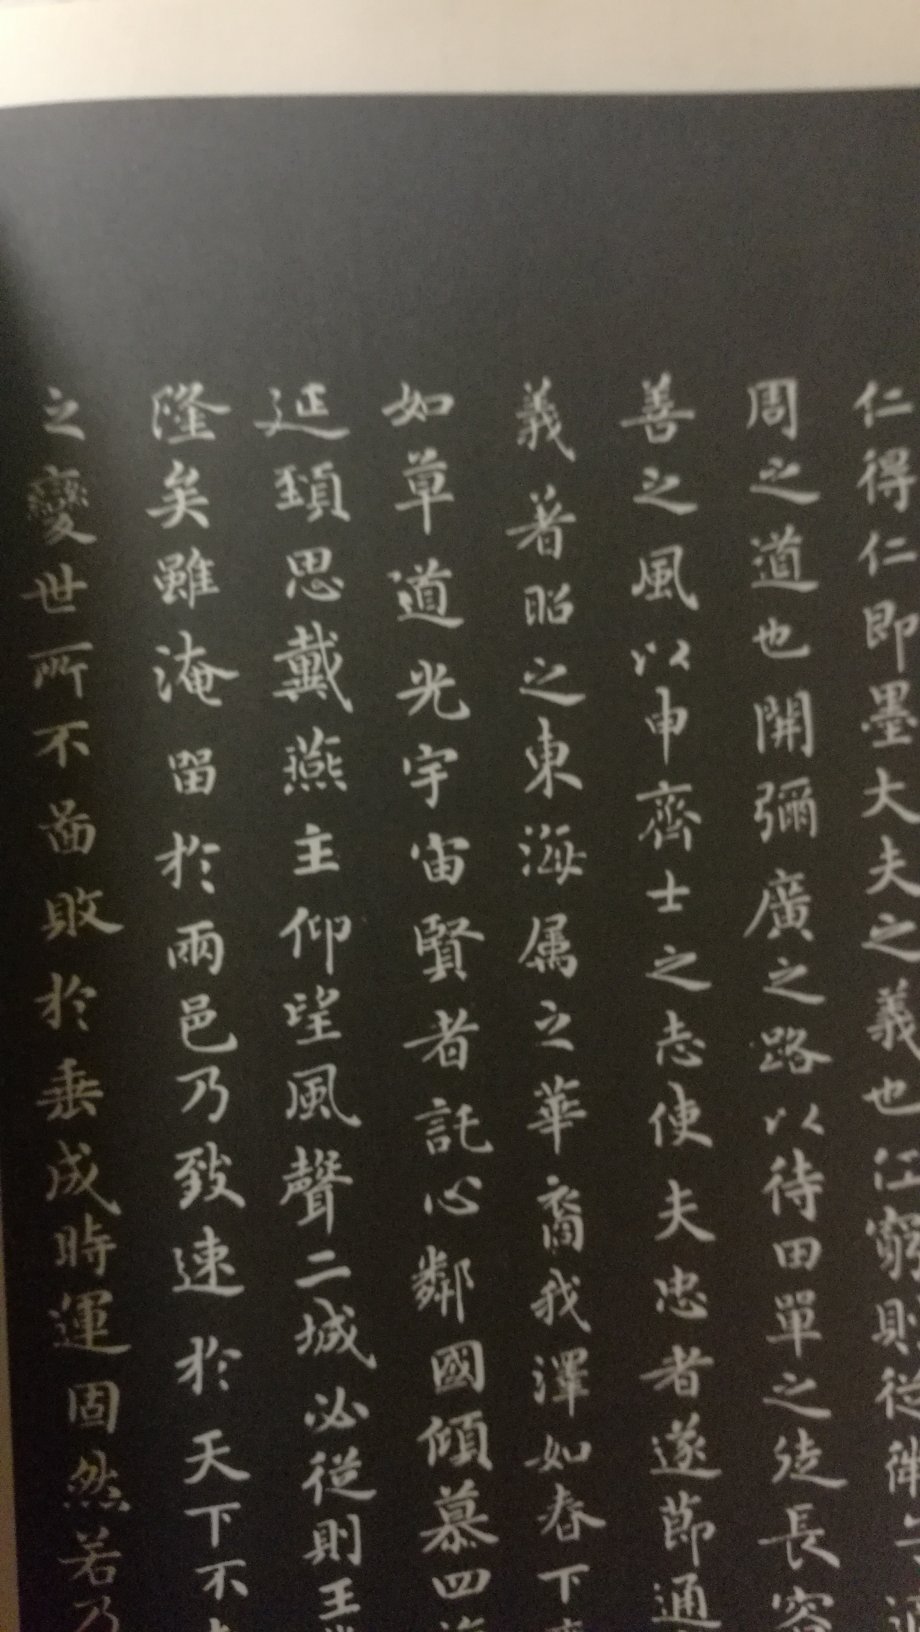 仁得仁即墨大夫之義也任窮則從
周之道也開彌廣之路以待田單之徒長容
善之風以申齊士之志使夫忠者遂節通
義著昭之東海属之華裔我澤如春下
如草道光宇宙賢者託心鄰國傾慕四海
延頸思戴燕主仰望風聲二城必從則王
隆矣雖淹留於兩邑乃致速於天下不
之變世所不啚敗於垂成時運固然若乃